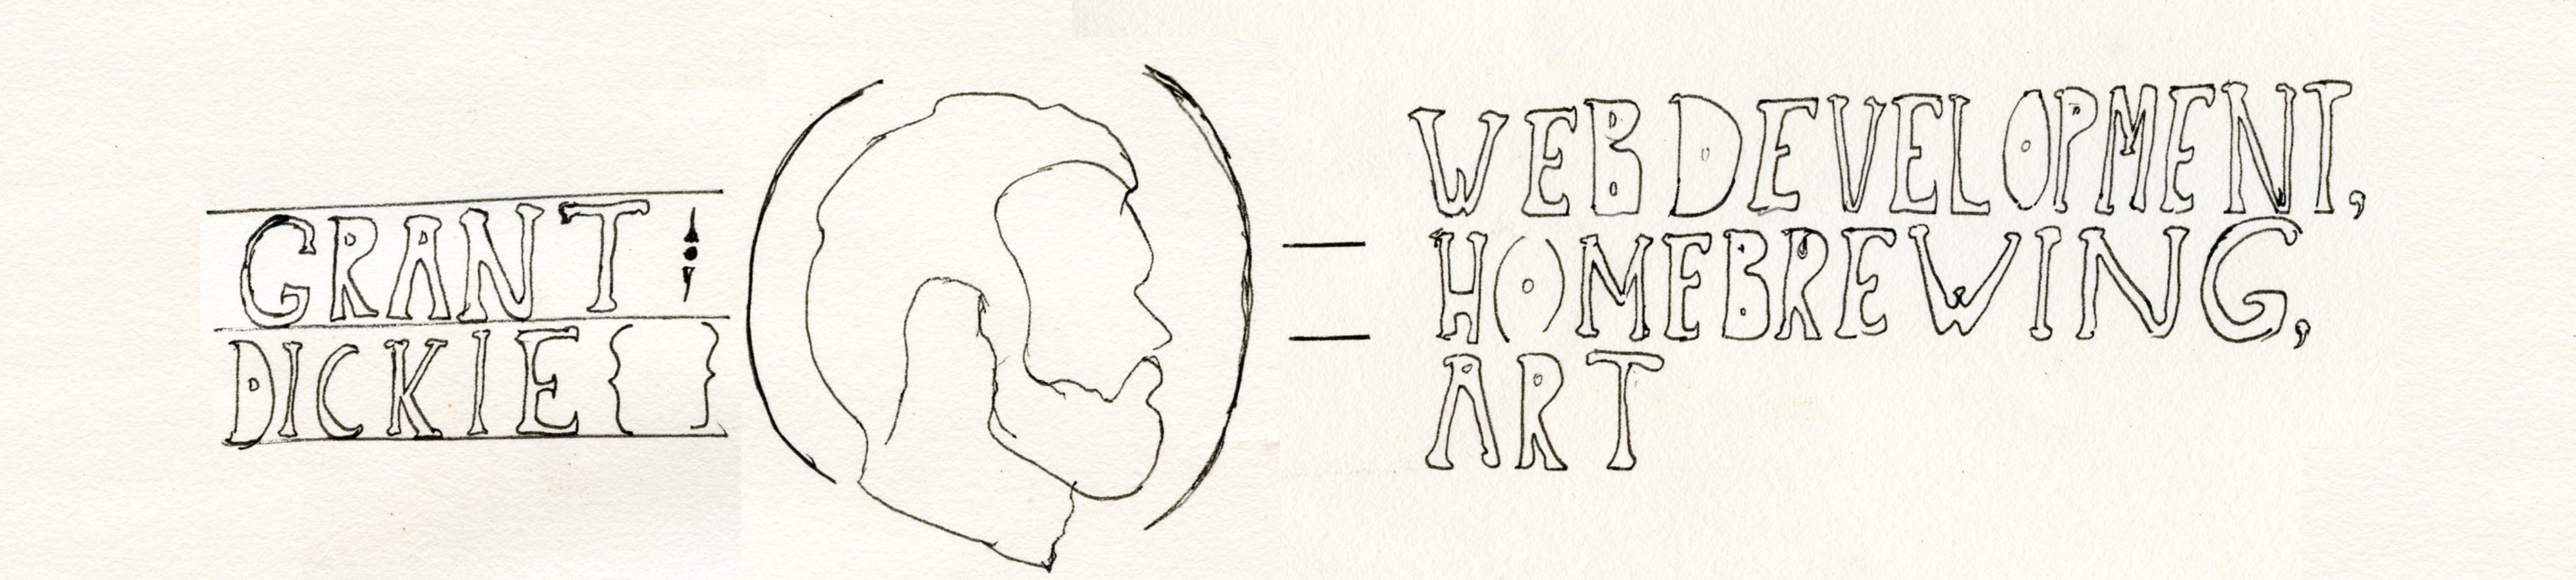 GRANT ;
DICKIE { }
( ) =
WEB DEVELOPMENT,
HOMEBREWING,
ART